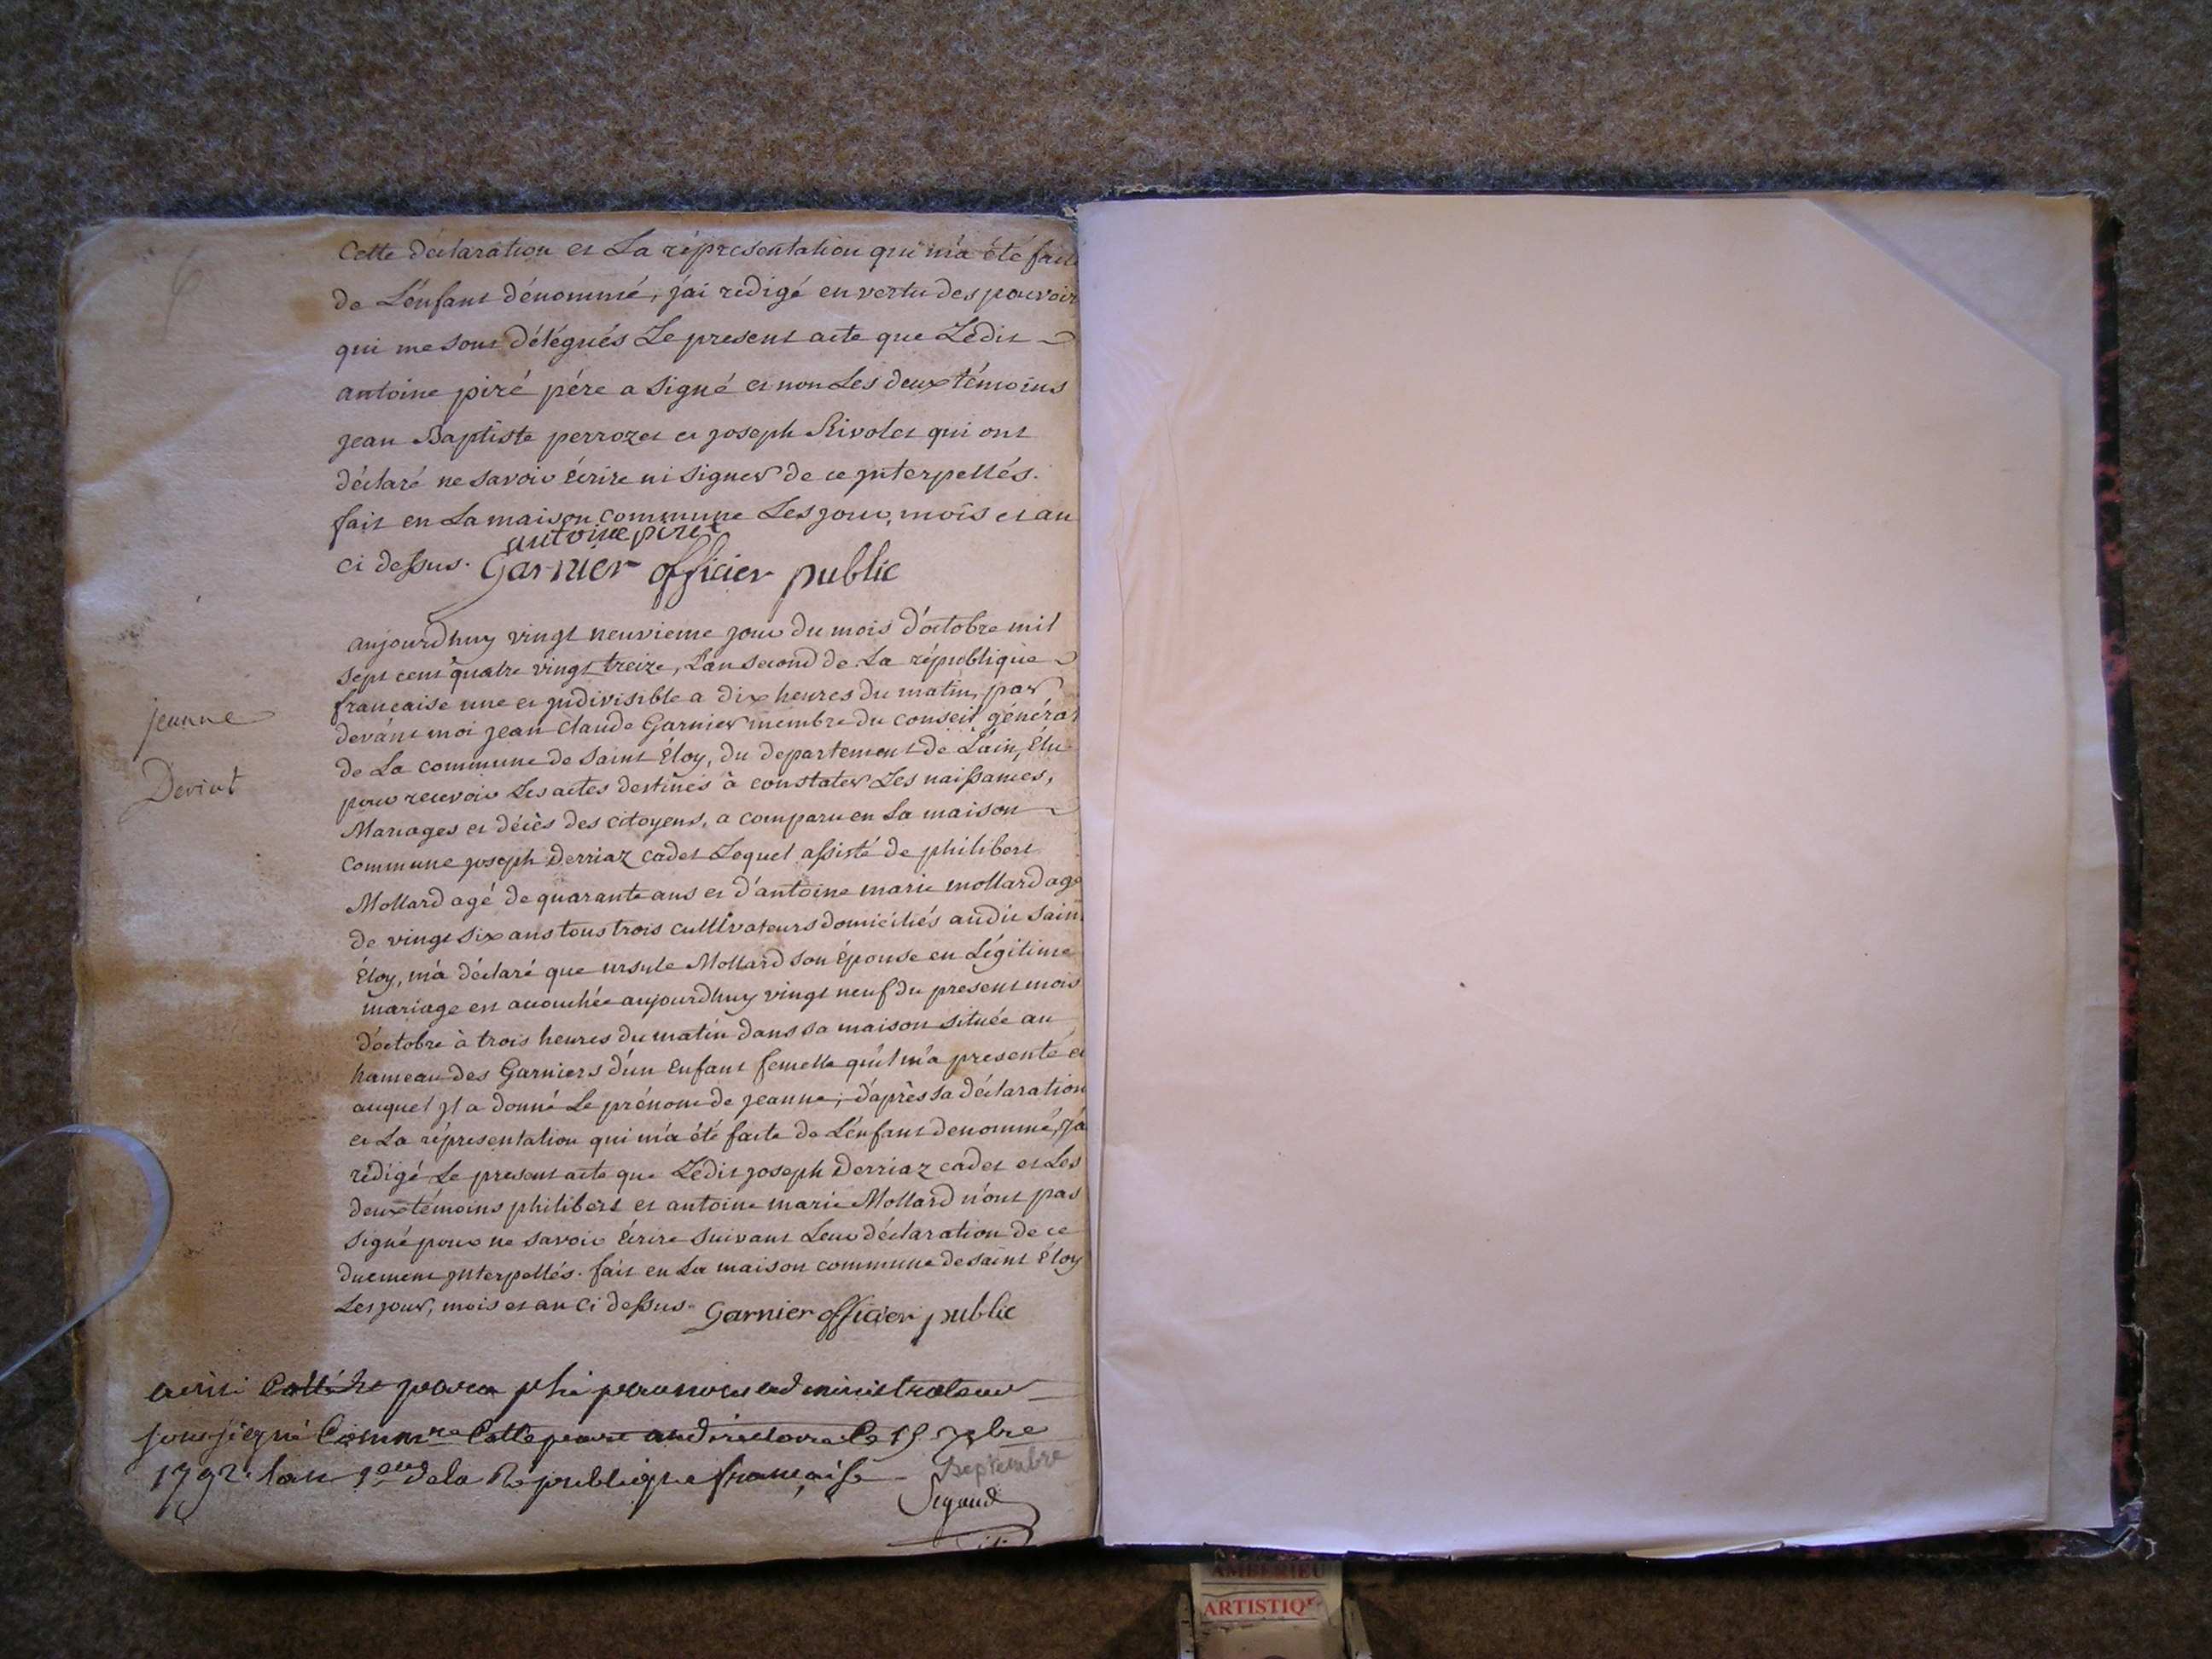 Cette déclaration et La réprésentation qui m'a été faite
de L'énfant dénommé, j'ai redigé en vertu des pouvoirs
qui me sont délégués Le present acte que Ledit
antoine piré pére a signé et non Les deux témoins
jean Baptiste perrozet et joseph Rivolet qui ont
déclaré ne savoir écrire ni signer de ce jnterpellés.
fait en La maison commune Les jour, mois et an
antoine piret
ci dessus. Garnier officier public
aujourdhuy vingt neuvieme jour du mois d'octobre mil
sept cent quatre vingt treize, L'an second de La république
francaise une et jndivisible a dix heures du matin, par
devant moi jean Claude Garnier membre du conseil général
de La commune de saint Eloy, du departement de L'ain, élu
jeanne
pour recevoir Les actes destinés à constater Les naissances,
Deriat
Mariages et décès des citoyens, a comparu en La maison
commune joseph Derriaz cadet Lequel assisté de philibert
Mollard agé de quarante ans et d'antoine marie mollard agé
de vingt six ans tous trois cultivateurs domiciliés audit saint
Éloy, m'a déclaré que ursule Mollard son épouse en Légitime
mariage est accouchée aujourdhuy vingt neuf du present mois
d'octobre à trois heures du matin dans sa maison située au
hameau des Garniers d'un enfant femelle qu'il m'a presenté et
auquel jl a donné Le prénom de jeanne; d'après sa déclaration
et La réprésentation qui m'a été faite de L'énfant denommé, j'a
rédigé Le present acte que Ledit joseph Derriaz cadet et Les
deux témoins philibert et antoine marie Mollard n'ont pas
signé pour ne savoir écrire suivant Leur déclaration de ce
duement jnterpellés. fait en La maison commune de saint Éloy
Les jour, mois et an ci dessus. Garnier officier public
administrateur
soussigné Comm.re au directoire le 15 7bre
septembre
1792 lan 1er de la République française
Sigaud
AMBERIEU
ARTISTIQ